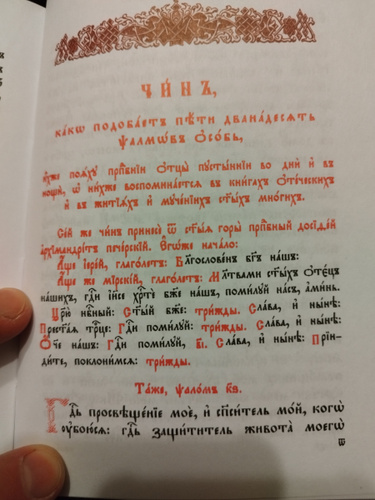 ЧИ́НЪ,
ка́кѡ подоба́етъ пѣ́ти двана́десѧть
ѱалмѡ́въ ѻ҆со́бь,
и҆̀хже поѧ́хꙋ прпⷣбнїи ѻ҆тцы̀ пꙋсты́ннїи во днѝ и҆ въ
нощѝ, ѡ҆ ни́хже воспомина́етсѧ въ кни́гахъ ѻ҆те́ческихъ
и҆ въ житїѧ́хъ и҆ мꙋче́нїихъ ст҃ы́хъ мно́гихъ.
Се́й же чи́нъ принесѐ ѿ ст҃ы́ѧ горы̀ прпⷣбный досїѳе́й
а҆рхїмандрі́тъ пече́рскїй. Е҆гѡ́же нача́ло:
А҆́ще і҆ере́й, глаго́летъ: Бл҃гослове́нъ бг҃ъ на́шъ:
А҆́ще же мїрскі́й, глаго́летъ: Мл҃твами ст҃ы́хъ ѻ҆те́цъ
на́шихъ, гдⷭ҇и і҆и҃се хрⷭ҇тѐ бж҃е на́шъ, поми́лꙋй на́съ, а҆ми́нь.
Цр҃ю̀ нбⷭ҇ный: Ст҃ы́й бж҃е: три́жды. Сла́ва, и҆ ны́нѣ:
Прест҃а́ѧ трⷪ҇це: Гдⷭ҇и поми́лꙋй: три́жды. Сла́ва, и҆ ны́нѣ:
Ѻ҆́ч҃е на́шъ: Гдⷭ҇и поми́лꙋй, в҃і. Сла́ва, и҆ ны́нѣ: Прїи-
ди́те, поклони́мсѧ: три́жды.
Та́же, ѱало́мъ к҃ѕ.
Гдⷭ҇ь просвѣще́нїе моѐ, и҆ сп҃си́тель мо́й, когѡ̀
ᲂу҆бою́сѧ: гдⷭ҇ь защи́титель живота̀ моегѡ̀
ѿ